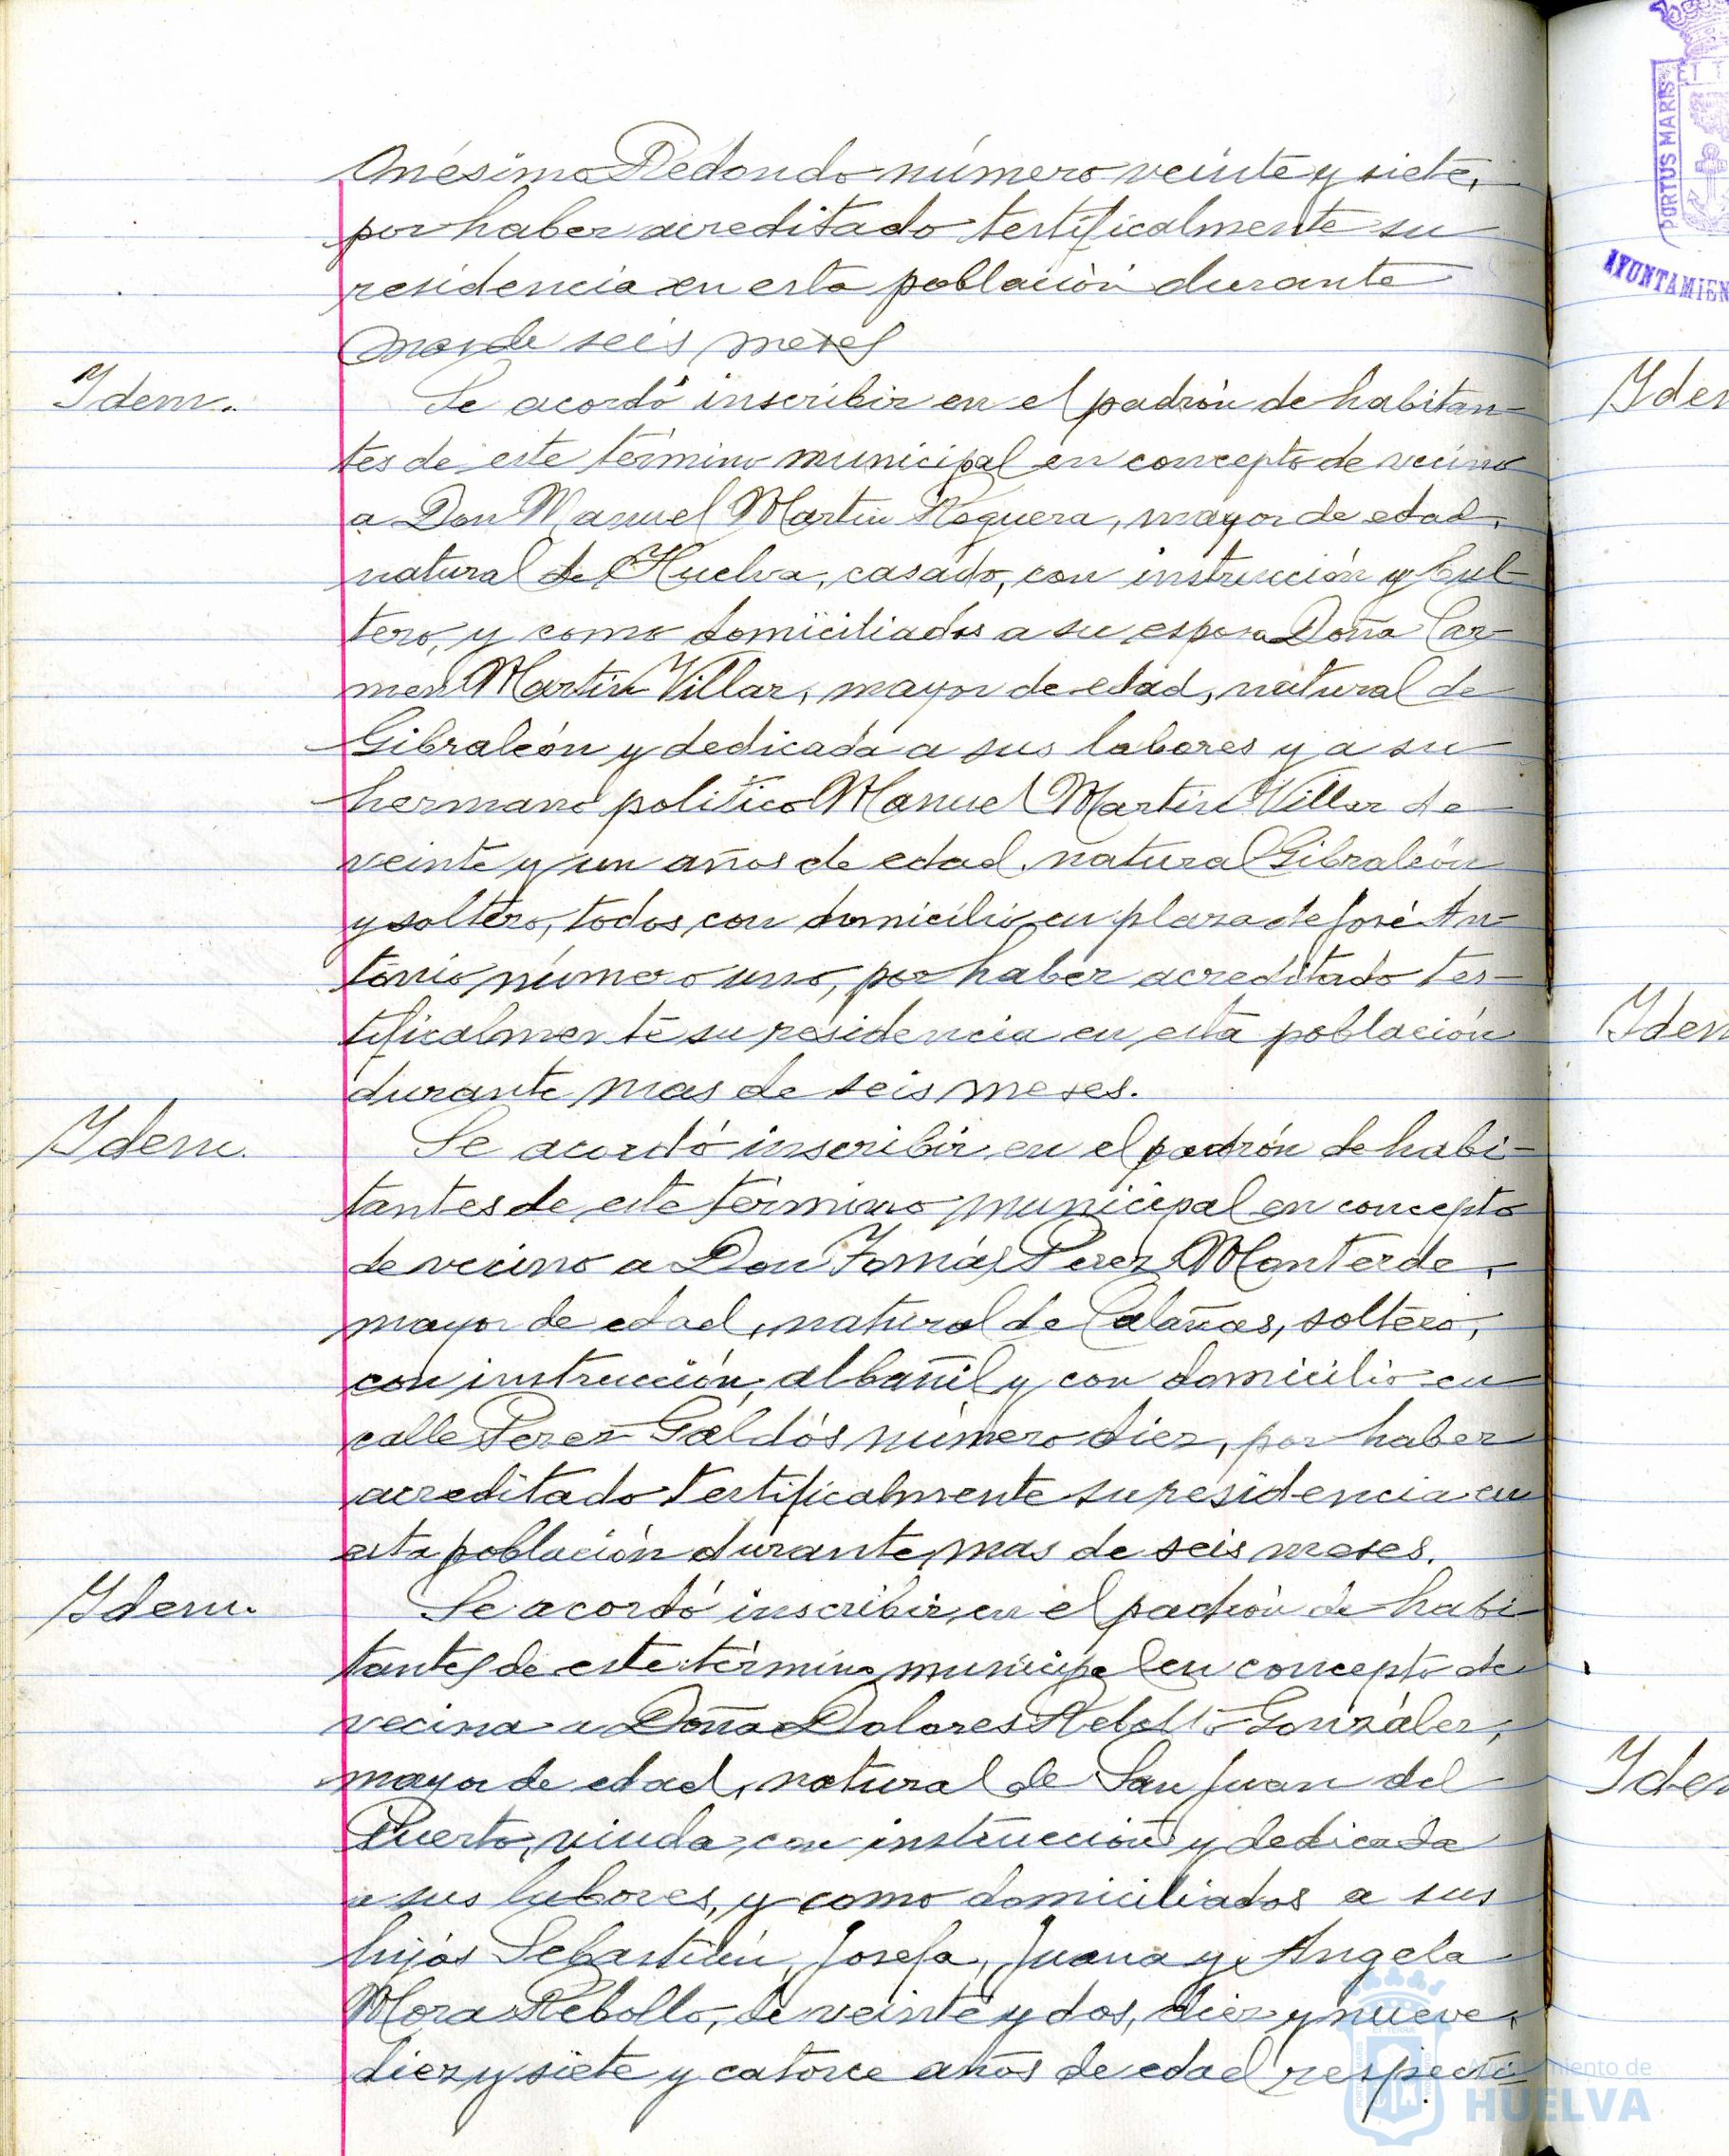 Onésimo Redondo número veinte y siete,
por haber acreditado testificalmente su
residencia en esta población durante
mas de seis meses
Idem.
Se acordó inscribir en el padrón de habitan-
tes de este término municipal en concepto de vecino
a Don Manuel Martin Noguera, mayor de edad,
natural de Huelva, casado, con instrucción y
tero, y como domiciliados a su esposa Doña Car-
men Martin Villar, mayor de edad, natural de
Gibraleón y dedicada a sus labores y a su
hermano politico Manuel Martin Villar de
veinte y un años de edad, natural Gibraleón
y soltero, todos con domicilio en plaza de José An-
tonio número uno, por haber acreditado tes-
tificalmente su residencia en esta población
durante mas de seis meses.
Idem.
Se acordó inscribir en el padrón de habi-
tantes de este término municipal en concepto
de vecino a Don Tomás Perez Monterde,
mayor de edad, natural de Calañas, soltero,
con instrucción, albañil y con domicilio en
calle Perez Galdós número diez, por haber
acreditado testificalmente su residencia en
esta población durante mas de seis meses.
Idem.
Se acordó inscribir en el padrón de habi-
tantes de este término municipal en concepto de
vecina a Doña Dolores Rebollo González,
mayor de edad, natural de San Juan del
Puerto, viuda, con instrucción y dedicada
a sus labores, y como domiciliados a sus
hijos Sebastián, Josefa, Juana y Angela
Mora Rebollo, de veinte y dos, diez y nueve,
diez y siete y catorce años de edad respecti
PORTUS MARIS
ET T
AYUNTAMIEN
Iden
Iden
Iden
Ayuntamiento de
HUELVA